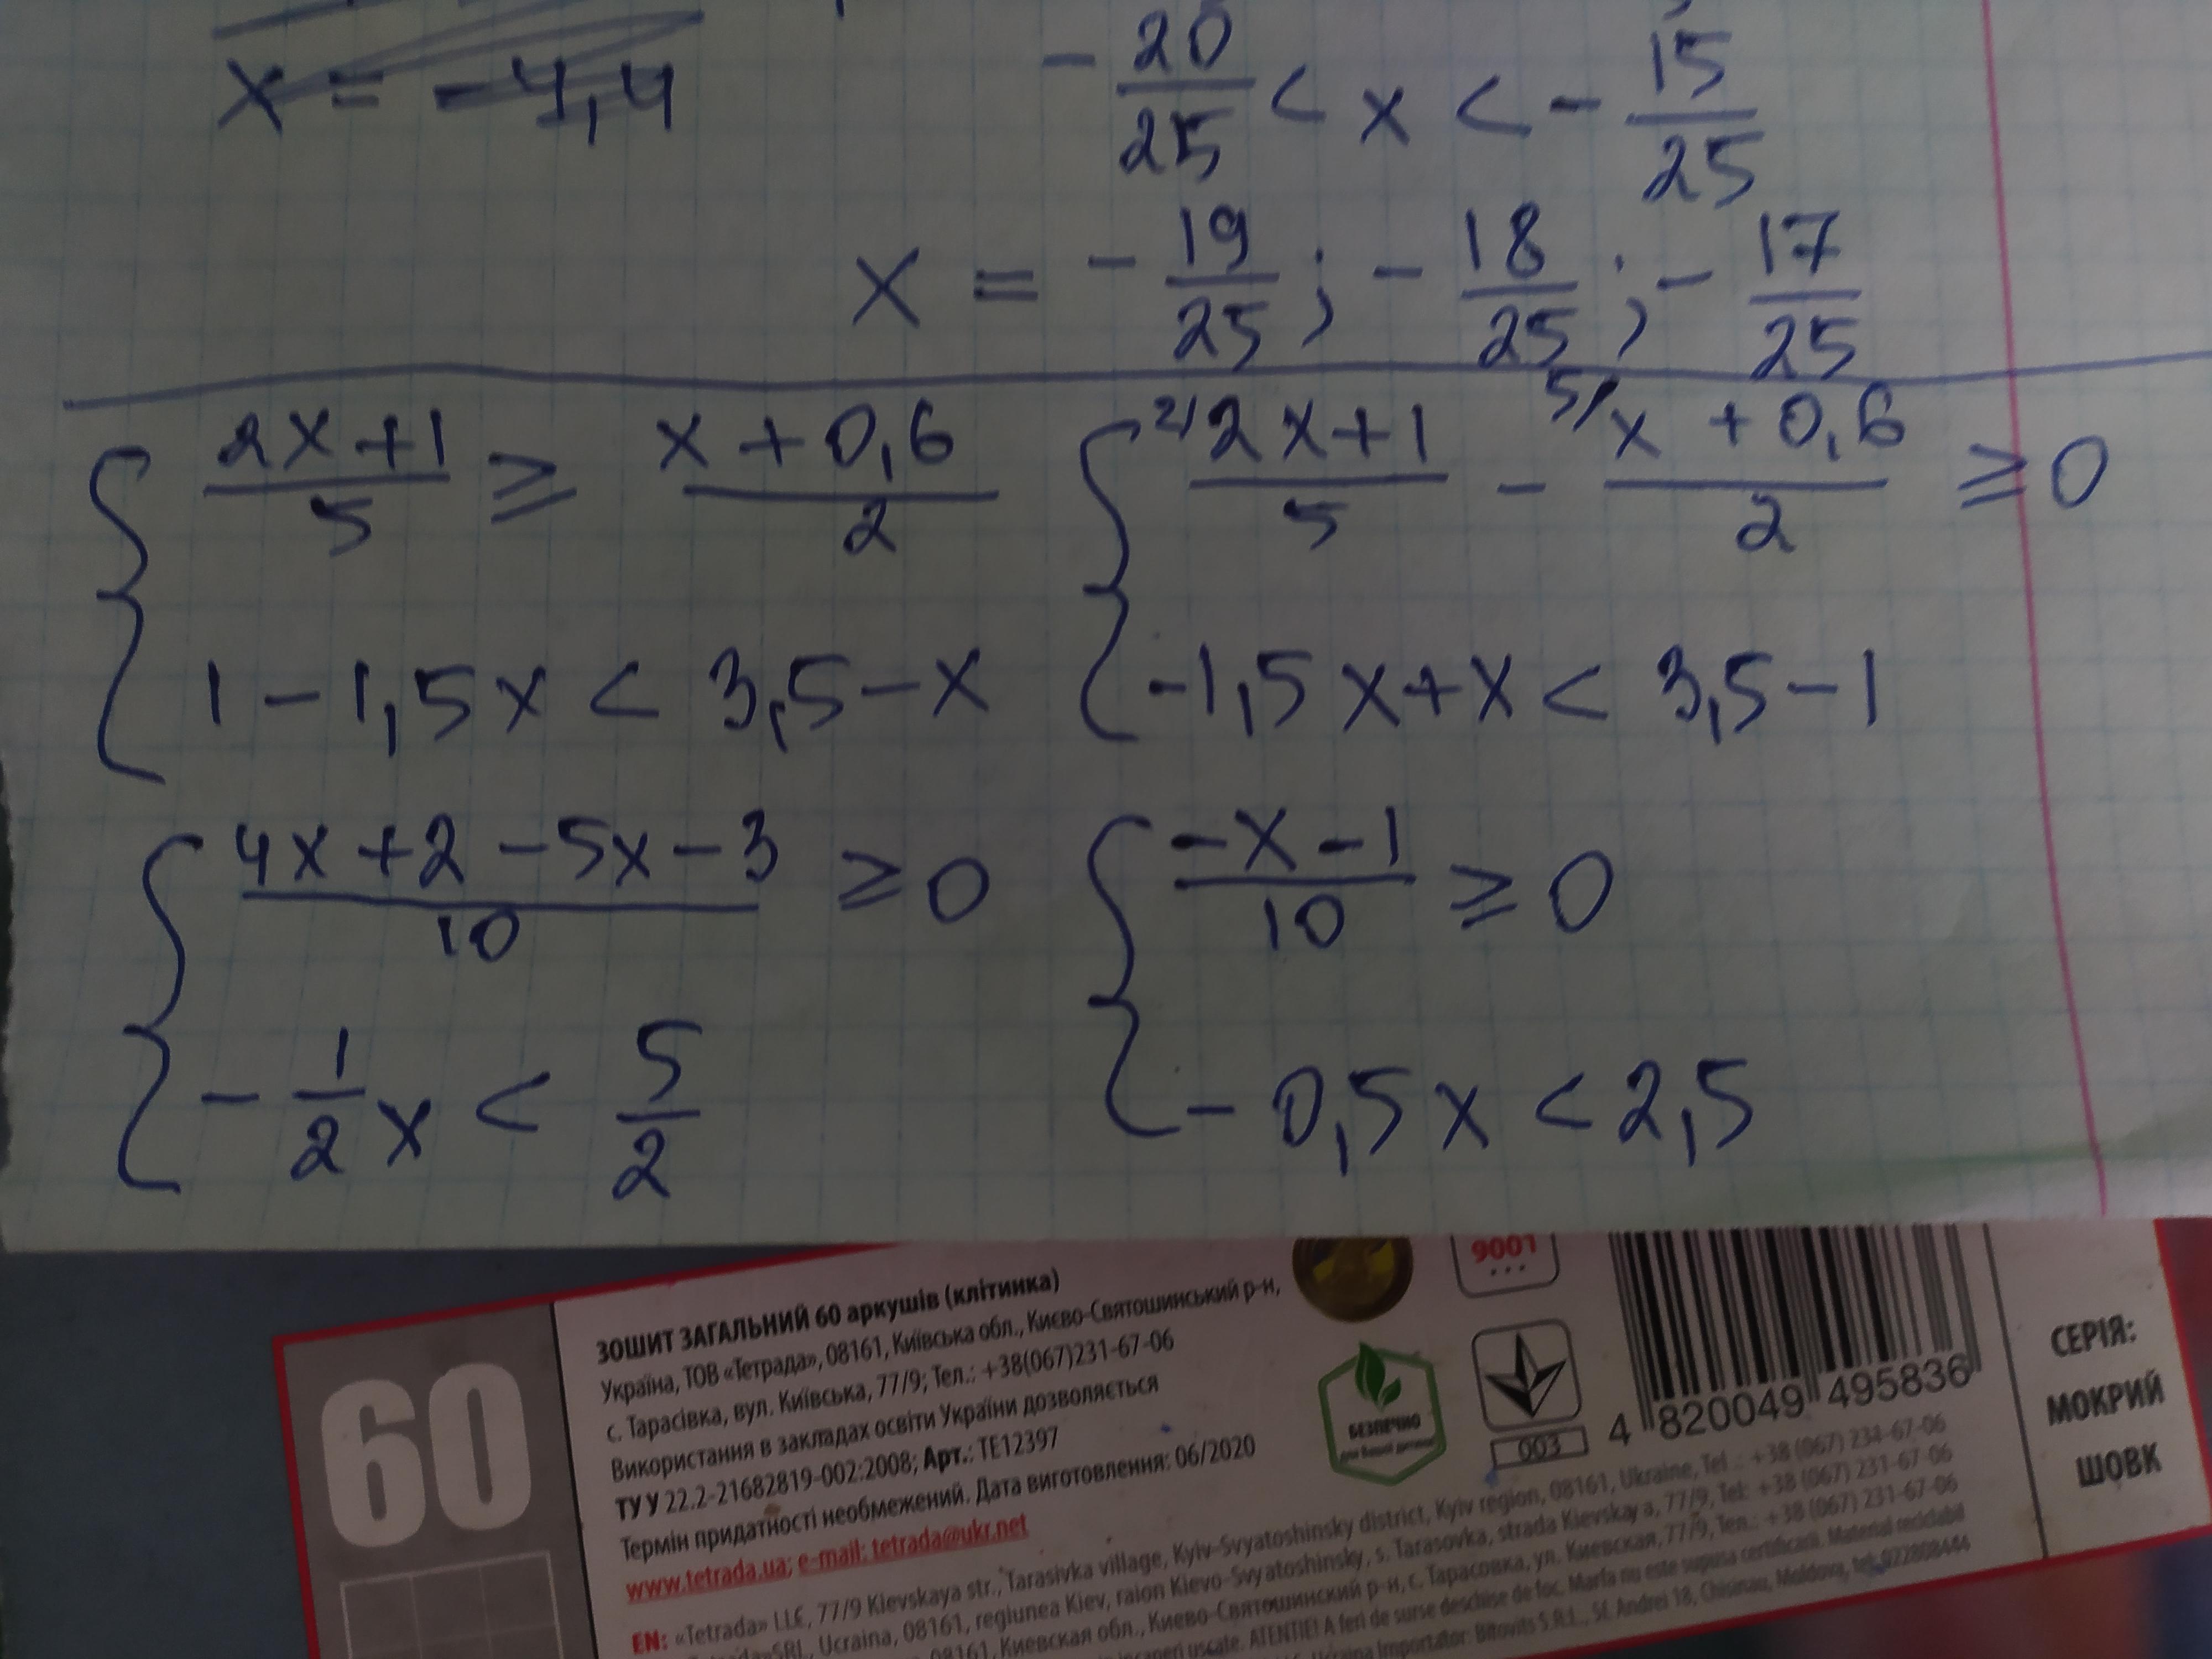 x = -4,4
- 20/25 < x < - 15/25
x = - 19/25 ; - 18/25 ; - 17/25
{ (2x+1)/5 ≥ (x+0,6)/2
1 - 1,5x < 3,5 - x
{ 2/ (2x+1)/5 - 5/ (x+0,6)/2 ≥ 0
-1,5x + x < 3,5 - 1
{ (4x+2-5x-3)/10 ≥ 0
- 1/2 x < 5/2
{ (-x-1)/10 ≥ 0
- 0,5x < 2,5
60
ЗОШИТ ЗАГАЛЬНИЙ 60 аркушів (клітинка)
Україна, ТОВ «Тетрада», 08161, Київська обл., Києво-Святошинський р-н,
с. Тарасівка, вул. Київська, 77/9; Тел.: +38(067)231-67-06
Використання в закладах освіти України дозволяється
ТУ У 22.2-21682819-002:2008; Арт.: ТЕ12397
Термін придатності необмежений. Дата виготовлення: 06/2020
www.tetrada.ua; e-mail: tetrada@ukr.net
EN: «Tetrada» LLC, 77/9 Kievskaya str., Tarasivka village, Kyiv-Svyatoshinsky district, Kyiv region, 08161, Ukraine, Tel.: +38 (067) 234-67-06
SRL, Ucraina, 08161, regiunea Kiev, raion Kievo-Svyatoshinsky, s. Tarasovka, strada Kievskaya, 77/9, Tel: +38 (067) 231-67-06
08161, Киевская обл., Киево-Святошинский р-н, с. Тарасовка, ул. Киевская, 77/9, Тел.: +38 (067) 231-67-06
ATENTIE! A feri de surse deschise de foc. Marfa nu este supusa certificarii. Material reciclabil
Importator: Bitovits S.R.L., Sf. Andrei 18, Chisinau, Moldova, tel. 022808444
9001
БЕЗПЕЧНО
003
4 820049 495836
СЕРІЯ:
МОКРИЙ
ШОВК